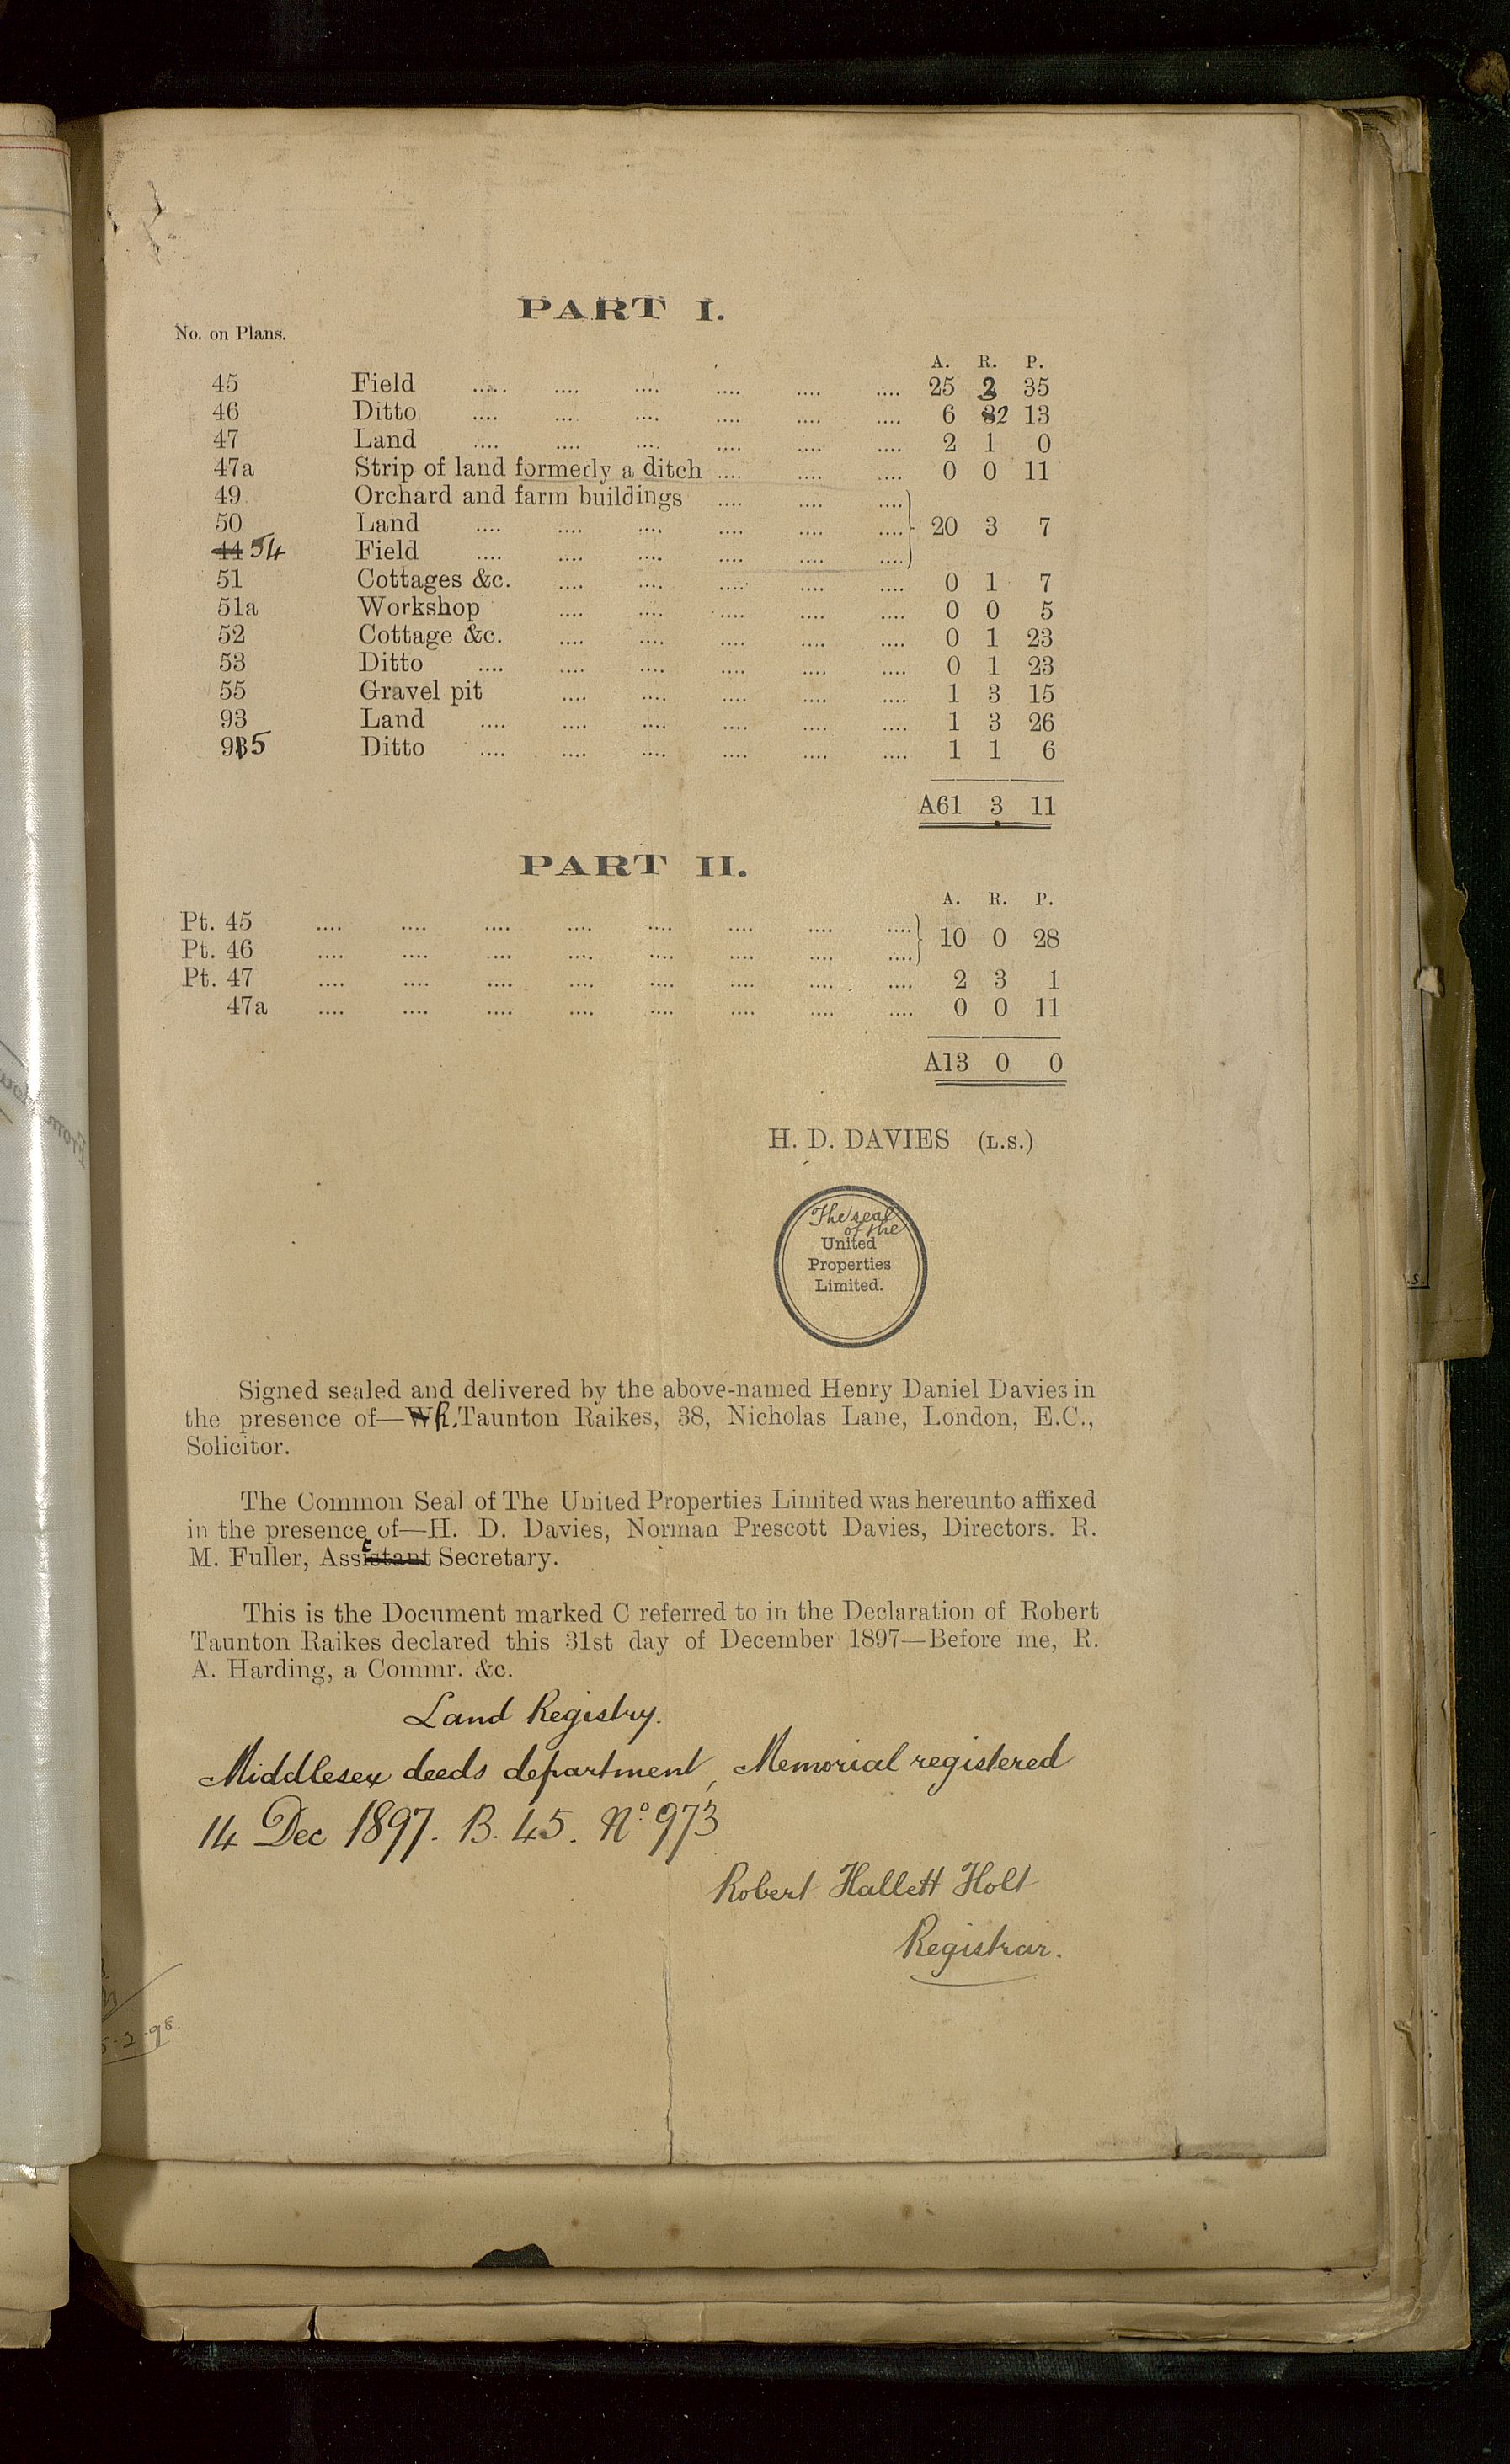 PART I.
No. on Plans.
A. R. P.
45 Field .... .... .... .... .... .... 25 2 35
46 Ditto .... .... .... .... .... .... 6 2 13
47 Land .... .... .... .... .... .... 2 1 0
47a Strip of land formerly a ditch .... .... .... 0 0 11
49 Orchard and farm buildings .... .... ....
50 Land .... .... .... .... .... .... 20 3 7
44 54 Field .... .... .... .... .... ....
51 Cottages &c. .... .... .... .... .... 0 1 7
51a Workshop .... .... .... .... .... 0 0 5
52 Cottage &c. .... .... .... .... .... 0 1 23
53 Ditto .... .... .... .... .... .... 0 1 23
55 Gravel pit .... .... .... .... .... 1 3 15
93 Land .... .... .... .... .... .... 1 3 26
95 Ditto .... .... .... .... .... .... 1 1 6
A61 3 11
PART II.
A. R. P.
Pt. 45 .... .... .... .... .... .... .... ....
Pt. 46 .... .... .... .... .... .... .... .... 10 0 28
Pt. 47 .... .... .... .... .... .... .... .... 2 3 1
47a .... .... .... .... .... .... .... .... 0 0 11
A13 0 0
H. D. DAVIES (L.S.)
The seal
of the
United
Properties
Limited.
Signed sealed and delivered by the above-named Henry Daniel Davies in
the presence of—W R. Taunton Raikes, 38, Nicholas Lane, London, E.C.,
Solicitor.
The Common Seal of The United Properties Limited was hereunto affixed
in the presence of—H. D. Davies, Norman Prescott Davies, Directors. R.
M. Fuller, Assistant Secretary.
This is the Document marked C referred to in the Declaration of Robert
Taunton Raikes declared this 31st day of December 1897—Before me, R.
A. Harding, a Commr. &c.
Land Registry.
Middlesex deeds department, Memorial registered
14 Dec 1897. B. 45. No 973
Robert Hallett Holt
Registrar.
5-2-98.